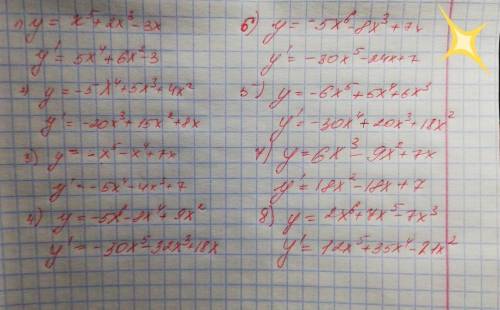 1) y = x⁵+2x³-3x
y' = 5x⁴+6x²-3
2) y = -5x⁴+5x³+4x²
y' = -20x³+15x²+8x
3) y = -x⁵-x⁴+7x
y' = -5x⁴-4x³+7
4) y = -5x⁶-8x⁴+9x²
y' = -30x⁵-32x³+18x
6) y = -5x⁶-8x³+7x
y' = -30x⁵-24x+7
5) y = -6x⁵+5x⁴+6x³
y' = -30x⁴+20x³+18x²
7) y = 6x³-9x²+7x
y' = 18x²-18x+7
8) y = 2x⁶+7x⁵-7x³
y' = 12x⁵+35x⁴-21x²